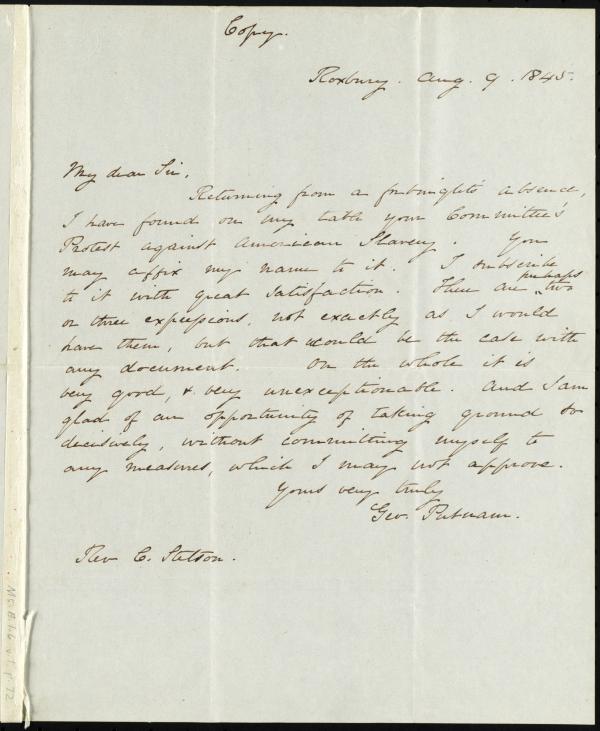 Copy.
Roxbury. Aug. 9. 1845.
My dear Sir,
Returning from a fortnight's absence,
I have found on my table your Committee's
Protest against American Slavery. You
may affix my name to it. I subscribe
to it with great satisfaction. There are ‸perhaps two
or three expressions, not exactly as I would
have them, but that would be the case with
any document. On the whole it is
very good, & very unexceptionable. And I am
glad of an opportunity of taking ground so
decisively, without committing myself to
any measures, which I may not approve.
Yours very truly
Geo. Putnam.
Rev C. Stetson.
Ms. B.1.6 v.1, p.72